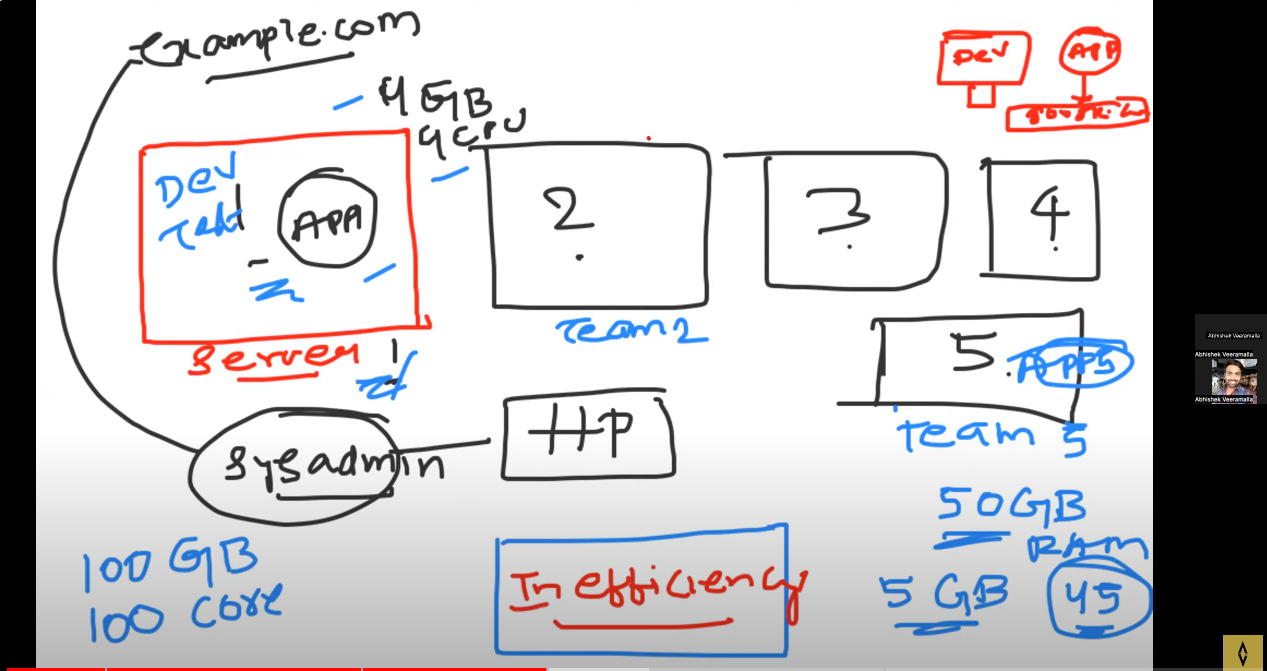 example.com
4 GB
4 CPU
DEV
APP
Dev
Test
APP
2
3
4
Server 1
Team 2
5
APP5
Team 5
Sysadmin
HP
100 GB
100 core
Inefficiency
50GB
RAM
5 GB
45
Abhishek Veeramalla
Abhishek Veeramalla
Abhishek Veeramalla